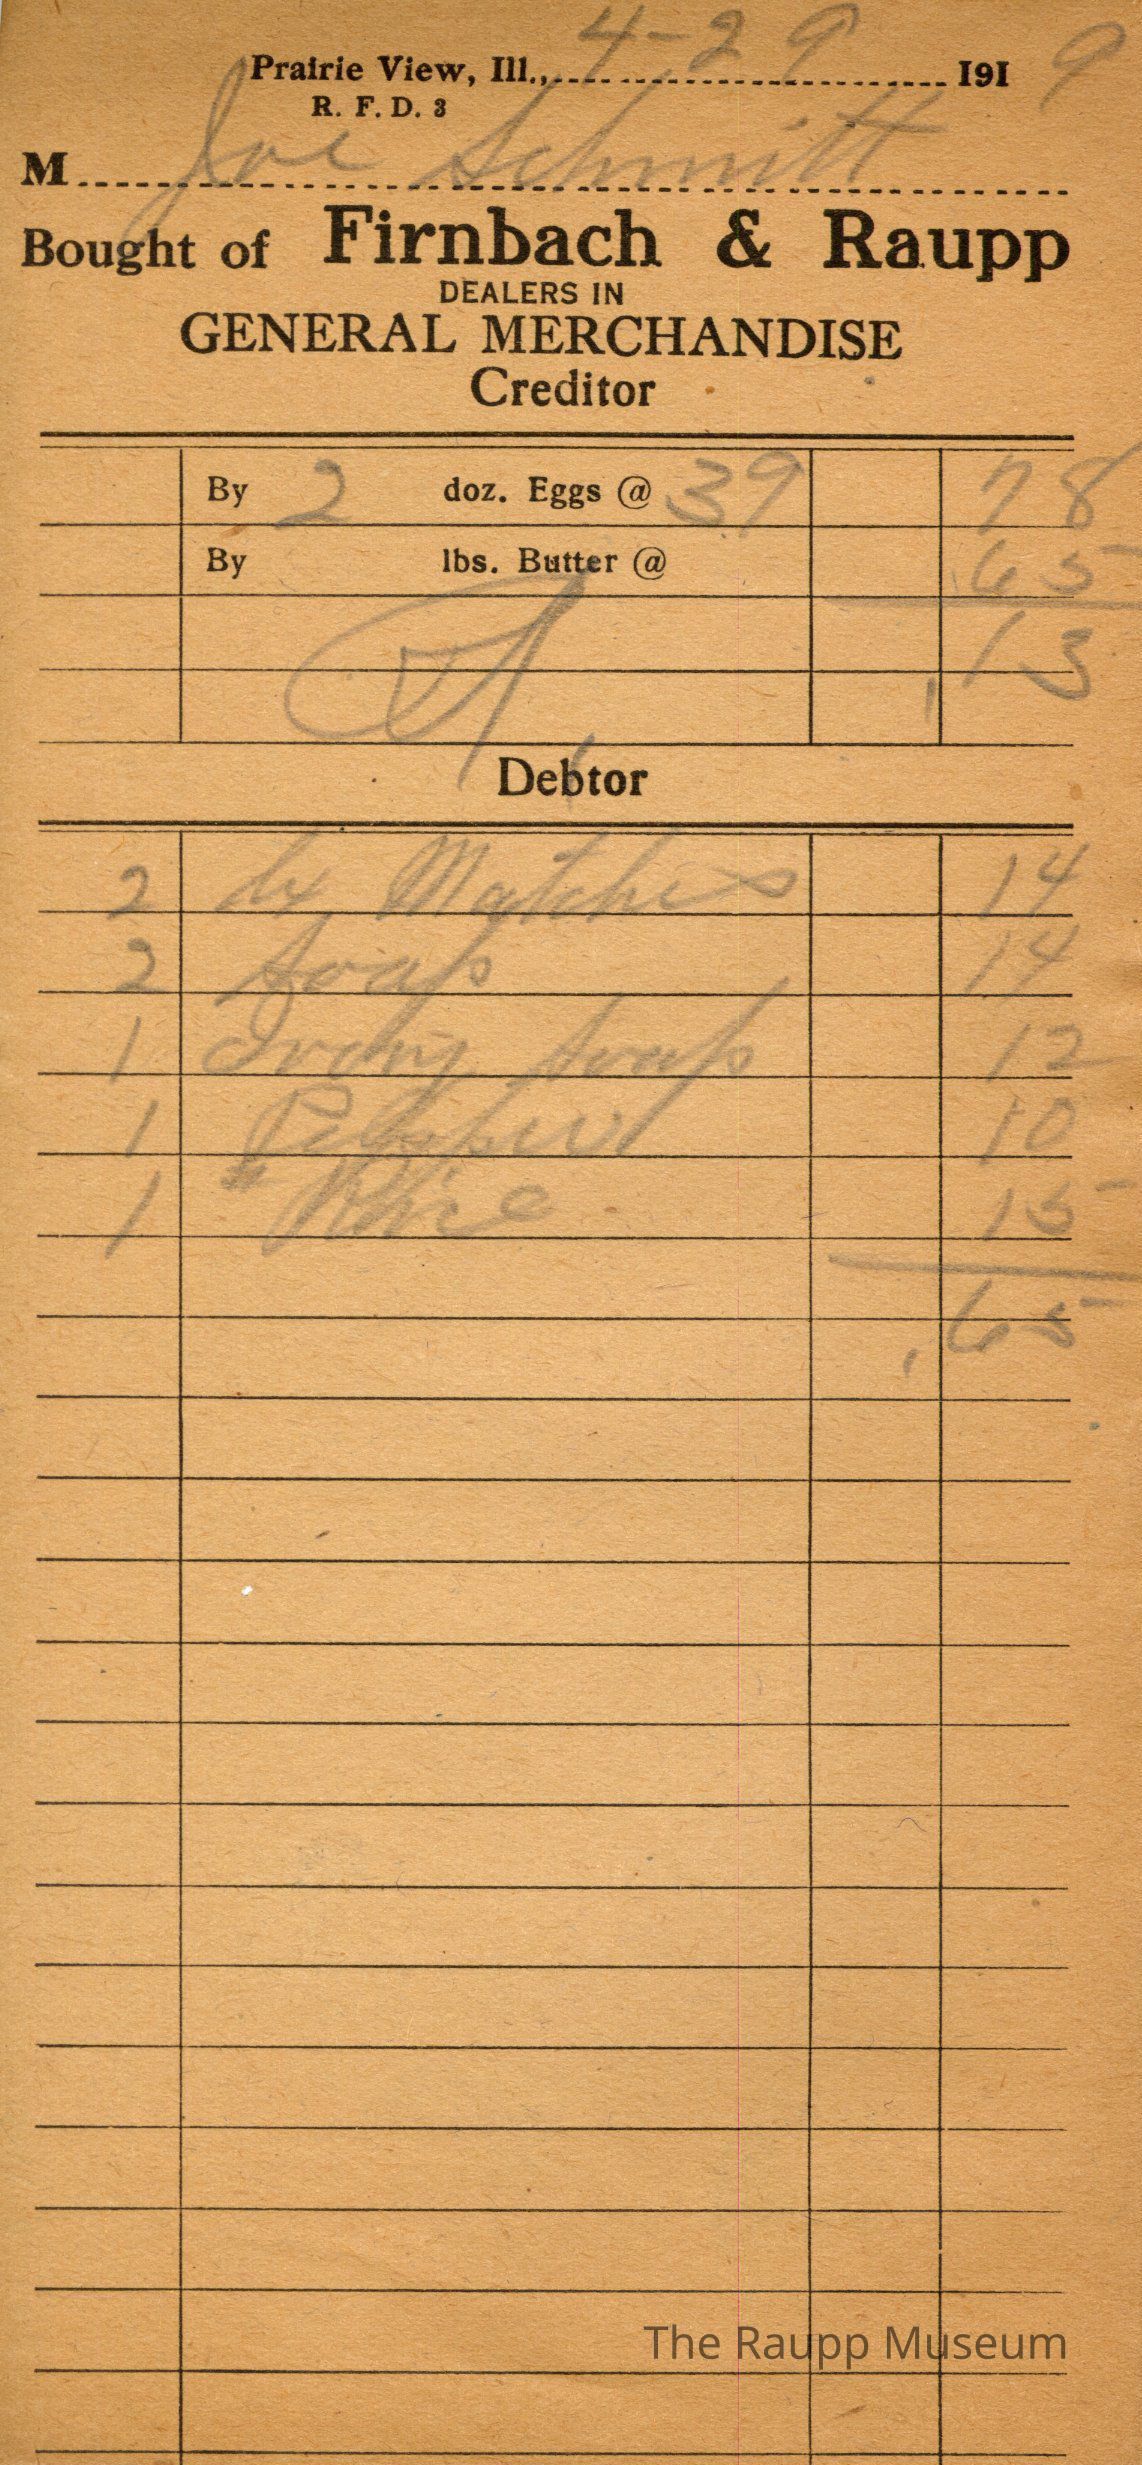 Prairie View, Ill., 4-29 1919
R. F. D. 3
M Joe Schmitt
Bought of Firnbach & Raupp
DEALERS IN
GENERAL MERCHANDISE
Creditor
By 2 doz. Eggs @ 39 78
By lbs. Butter @ .65
.13
Debtor
2 bx Matches 14
2 Soap 14
1 Ivory Soap 12
1 Pepper 10
1 # Rice 15
.65
The Raupp Museum